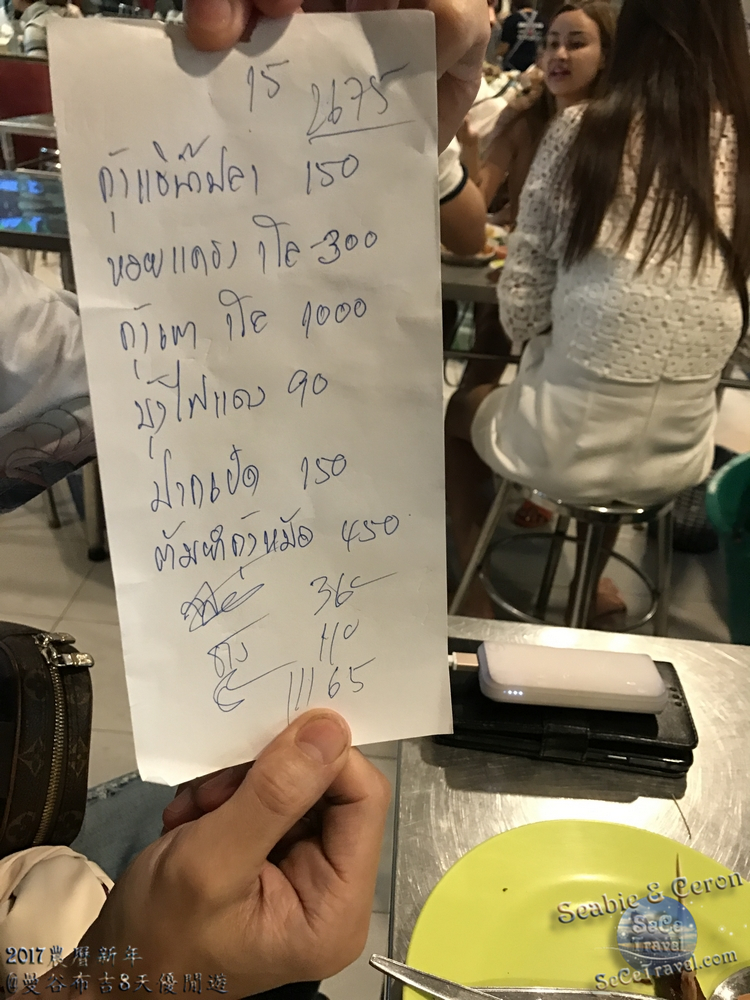 15 2675
กุ้งแช่น้ำปลา 150
หอยแครง 1โล 300
กุ้งเผา 1โล 1000
บุ้งไฟแดง 90
ปากเป็ด 150
ต้มยำกุ้งหม้อ 450
360
110
III 65
Seabie & Ceron
SeCe
Travel
SeCeTravel.com
2017農曆新年
@曼谷布吉8天優閒遊